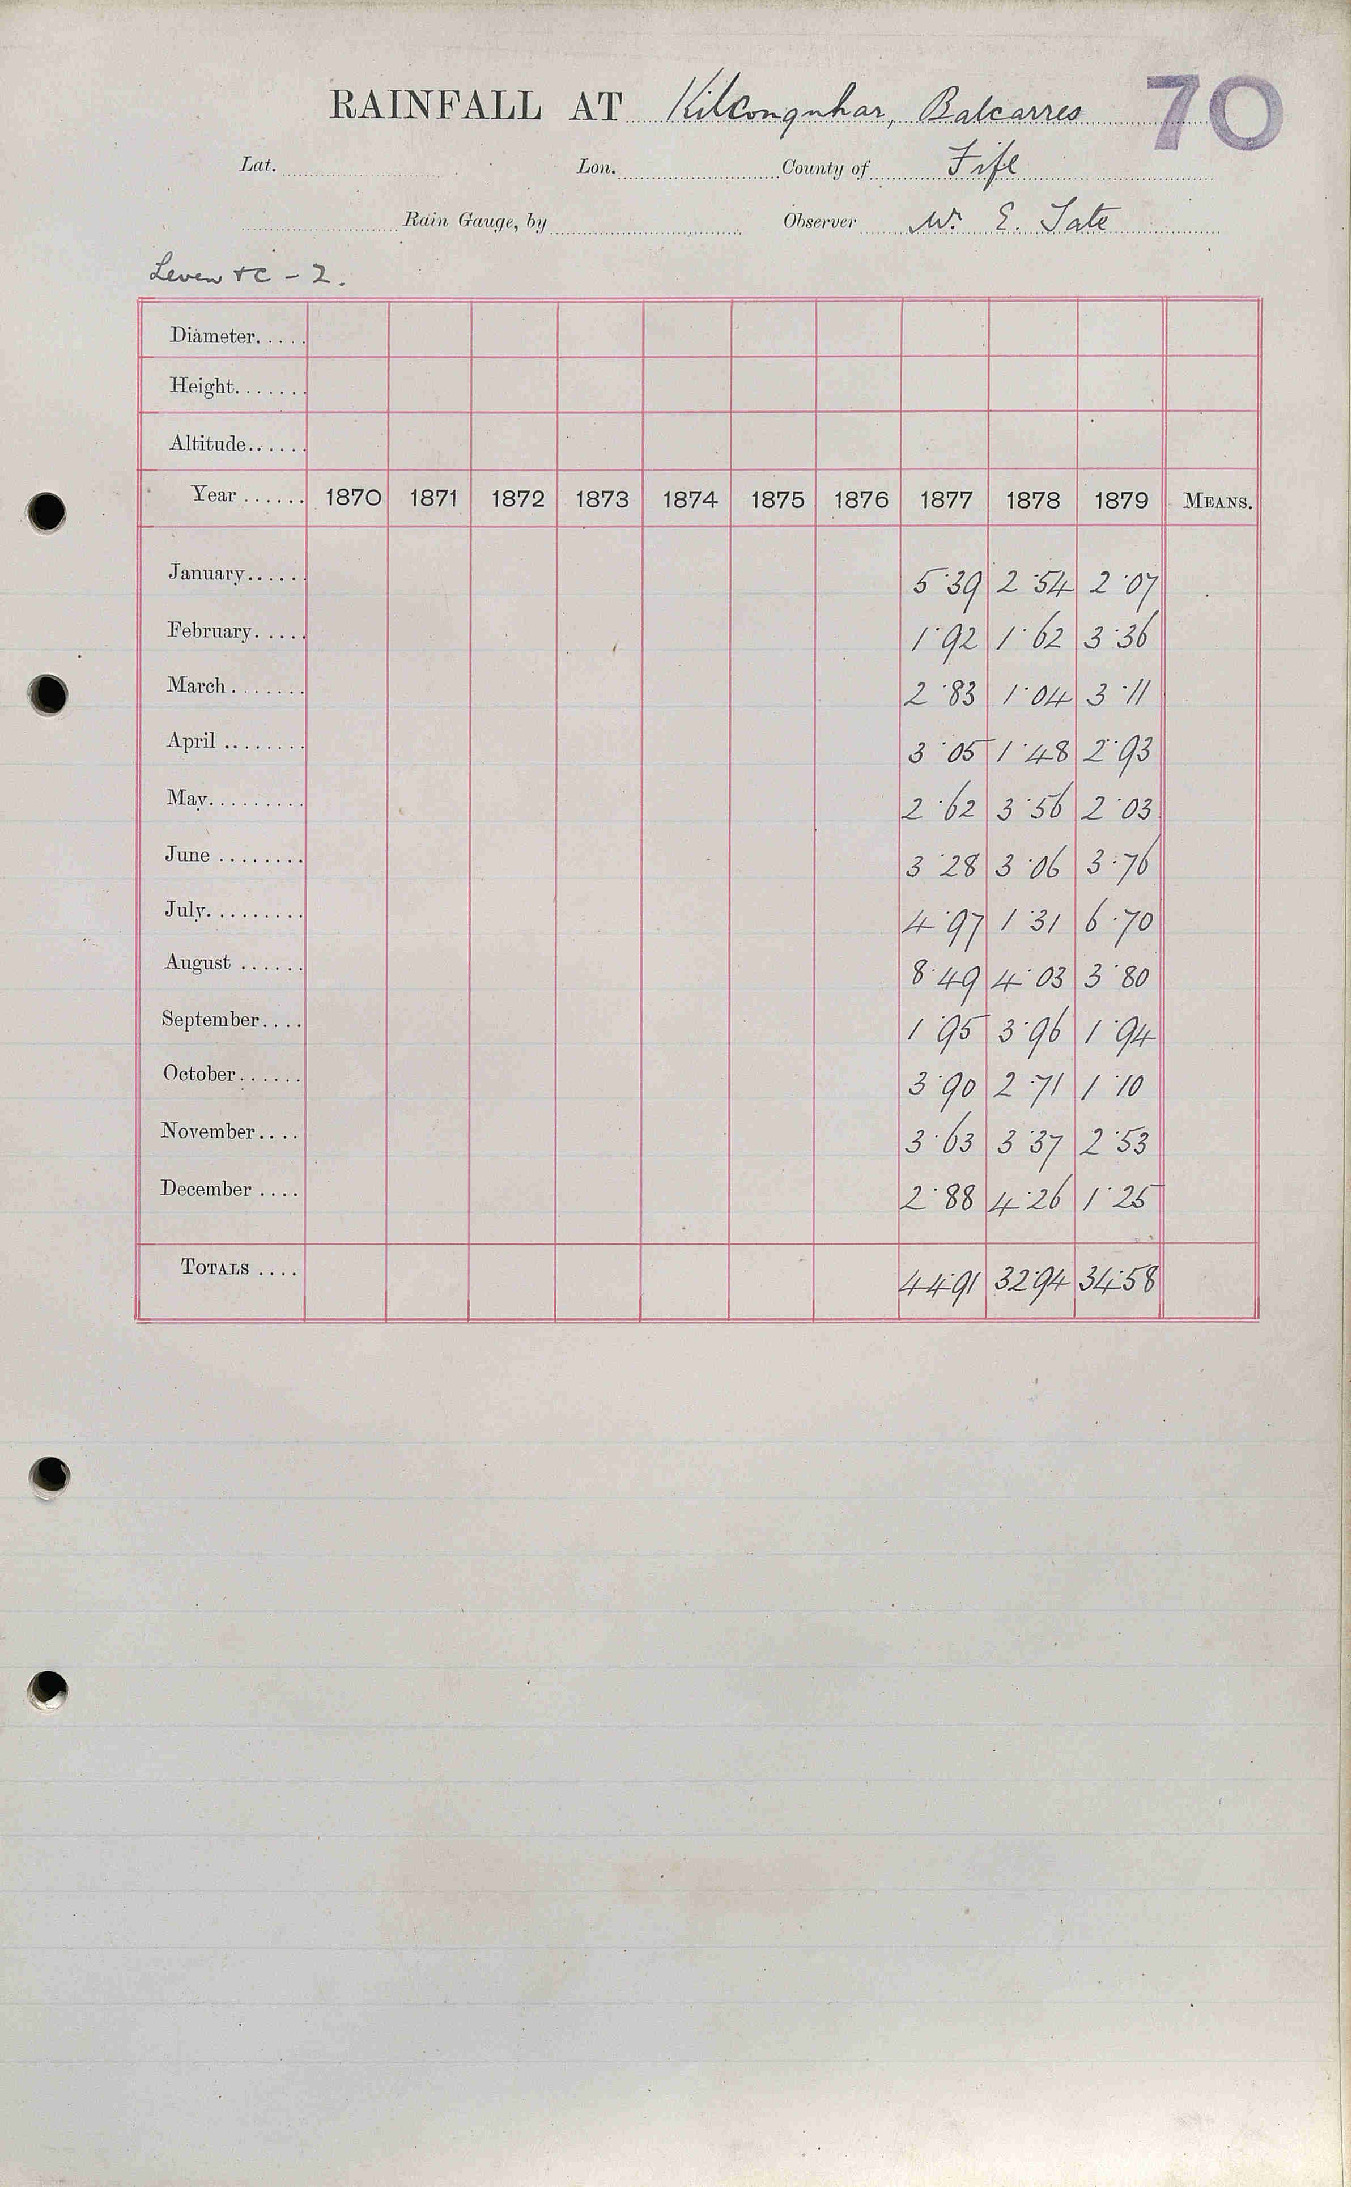 RAINFALL AT Kilconquhar, Balcarres 70
Lat. Lon. County of Fife
Rain Gauge, by Observer Mr. E. Tate
Leven &c - 2.
Diameter.....
Height.......
Altitude......
Year ...... 1870 1871 1872 1873 1874 1875 1876 1877 1878 1879 MEANS.
January...... 5.39 2.54 2.07
February..... 1.92 1.62 3.36
March ....... 2.83 1.04 3.11
April ........ 3.05 1.48 2.93
May......... 2.62 3.56 2.03
June ........ 3.28 3.06 3.76
July......... 4.97 1.31 6.70
August ...... 8.49 4.03 3.80
September.... 1.95 3.96 1.94
October...... 3.90 2.71 1.10
November.... 3.63 3.37 2.53
December .... 2.88 4.26 1.25
TOTALS .... 44.91 32.94 34.58